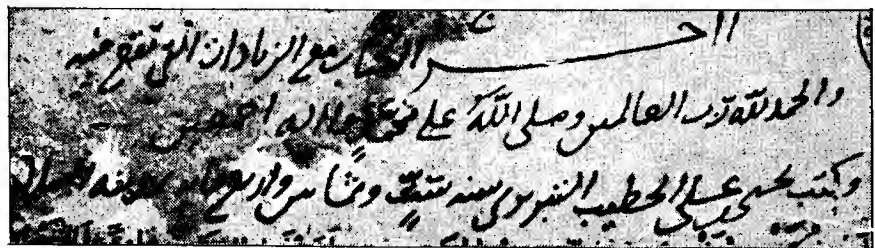 ااخر الكتاب مع الزيادات التي تقع فيه
والحمد لله رب العالمين وصلى الله على محمد واله اجمعين
وكتب يحيى بن علي الخطيب التبريزي سنه ست وثمانين واربع